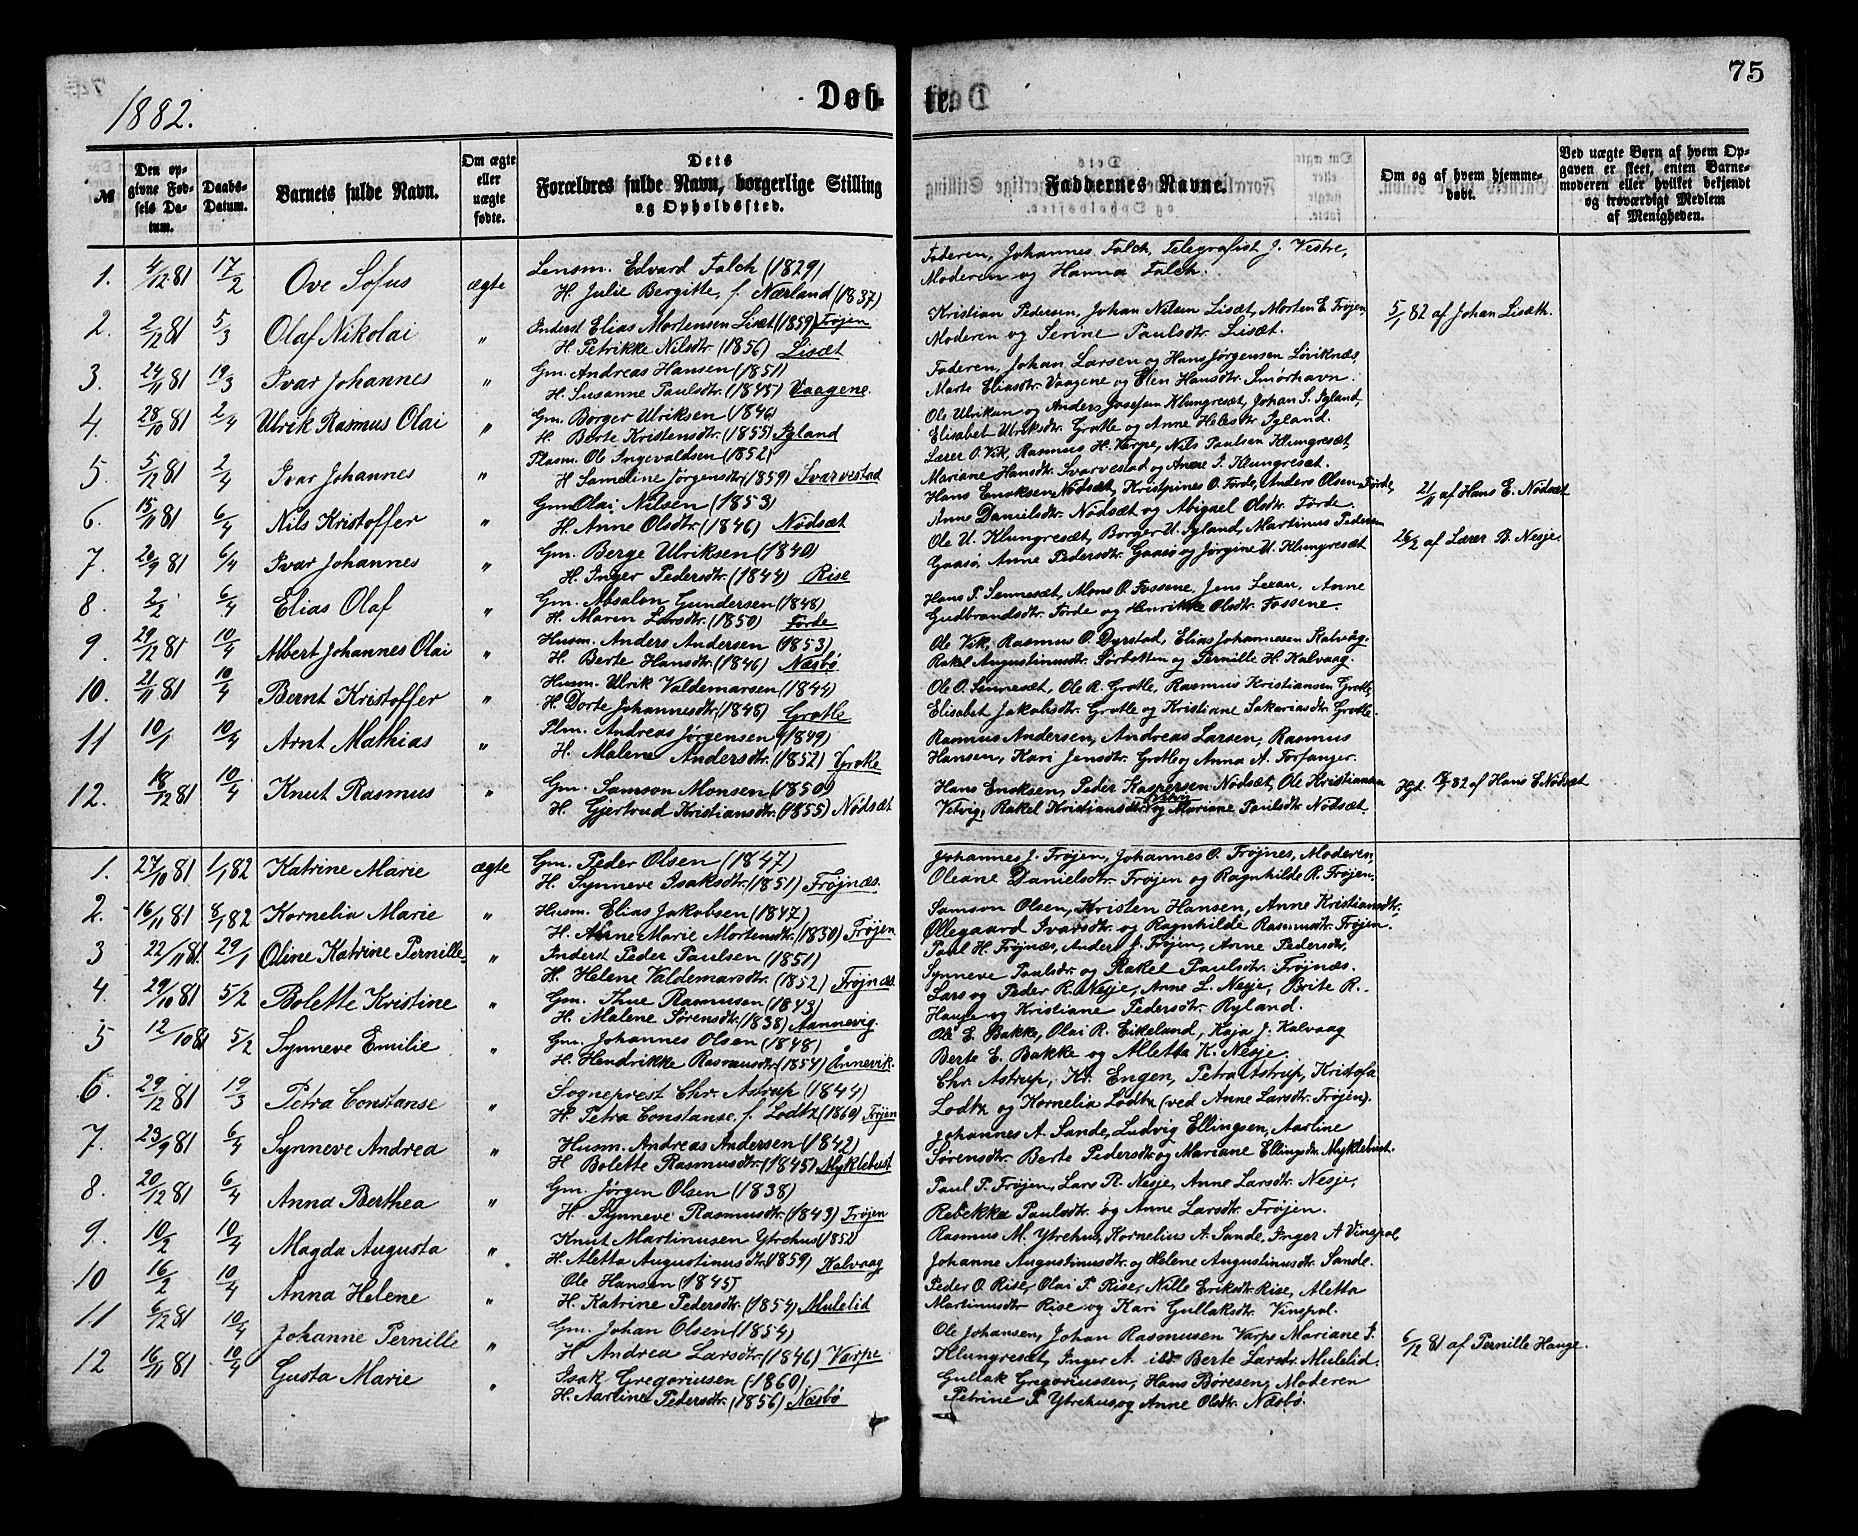 75
1882.
Døb- te.
№
Den opgivne Fødsels Datum.
Daabs-Datum.
Barnets fulde Navn.
Om ægte eller uægte fødte.
Dets Forældres fulde Navn, borgerlige Stilling og Opholdssted.
Faddernes Navne.
Om og af hvem hjemmedøbt.
Ved uægte Børn af hvem Opgaven er skeet, enten Barnemoderen eller hvilket bekjendt og troværdigt Medlem af Menigheden.
1. 4/12 81 17/2 Ove Sofus ægte Lensm. Edvard Falch (1829) Faderen, Johannes Falch, Telegrafist J. Vestre,
H. Julie Bergitte, f. Nærland (1837) Moderen og Hanna Falch.
2. 2/12 81 5/3 Olaf Nikolai " Inderst Elias Mortensen Lisæt (1859) Frøjen Kristian Pedersen, Johan Nilsen Lisæt, Morten E. Frøjen 5/1 82 af Johan Lisæth.
H. Petrikke Nilsdtr (1856) Lisæt Moderen og Serine Paulsdtr. Lisæt.
3. 24/11 81 19/3 Ivar Johannes " Gm. Andreas Hansen (1851) Faderen, Johan Larsen og Hans Jørgensen Løviknæs
H. Susanne Paulsdtr. (1845) Vaagene. Marte Eliasdtr. Vaagene og Elen Hansdtr. Smørhavn.
4. 28/10 81 2/4 Ulrik Rasmus Olai " Gm. Borger Ulriksen (1846) Ole Ulriksen og Anders Josefsen Klungresæt, Johan S. Igland,
H. Berte Kristensdtr. (1855) Igland Elisabet Ulriksdtr. Grotle og Anne Helesdtr Igland.
5. 5/12 81 2/4 Ivar Johannes " Plasm. Ole Ingevaldsen (1852) Lærer O. Vik, Rasmus H. Varpe, Nils Paulsen Klungresæt
H. Sameline Jørgensdtr (1859) Svarvestad Mariane Hansdtr. Svarvestad og Anne I. Klungresæt.
6. 15/11 81 6/4 Nils Kristoffer " Gm. Olai Nilsen (1853) Hans Enoksen Nødsæt, Kristpines O. Førde, Anders Olsen Førde, 21/11 af Hans E. Nødsæt
H. Anne Olsdtr. (1846) Nødsæt Anne Danielsdtr. Nødsæt og Abigael Olsdtr. Førde.
7. 20/9 81 6/4 Ivar Johannes " Gm. Berge Ulriksen (1840) Ole U. Klungresæt, Borger U. Igland, Martinus Pedersen 26/2 af Lærer B. Nesje.
H. Inger Pedersdtr. (1844) Rise Gaasø, Anne Pedersdtr. Gaasø og Jørgine U. Klungresæt
8. 2/2 6/4 Elias Olaf " Gm. Absalon Gundersen (1848) Hans P. Sennesæt, Mons O. Fossene, Jens Lexau, Anne
H. Maren Larsdtr. (1850) Førde Gudbrandsdtr. Førde og Henrikke Olsdtr. Fossene.
9. 29/12 81 10/4 Albert Johannes Olai " Husm. Anders Andersen (1853) Ole Vik, Rasmus O. Dyrstad, Elias Johannesen Kalvåg.
H. Berte Hansdtr. (1846) Næsbø Rakel Augustinusdtr. Sørbotten og Pernille H. Kalvaag.
10. 21/11 81 10/4 Bernt Kristoffer " Husm. Ulrik Valdemarsen (1844) Ole O. Sennesæt, Ole R. Grotle, Rasmus Kristiansen Grotle,
H. Dorte Johannesdtr. (1848) Grotle Elisabet Jakobsdtr. Grotle og Kristiane Sakariasdtr. Grotle.
11 10/1 10/4 Arnt Mathias " Plm. Andreas Jørgensen (1849) Rasmus Andersen, Andreas Larsen, Rasmus
H. Malene Andersdtr. (1852) Grotle Hansen, Kari Jensdtr. Grotle og Anna A. Forfanger.
12. 18/12 81 10/4 Knut Rasmus " Gm. Samson Monsen (1850) Hans Enoksen, Peder Kaspersen Nødsæt, Ole Kristiansen Hjd. 82 af Hans E. Nødsæt
H. Gjertrud Kristiansdtr. (1855) Nødsæt Vetvig, Rakel Kristiansdtr. Vetvig og Mariane Paulsdtr. Nødsæt.
1. 27/10 81 1/1 82 Katrine Marie ægte Gm. Peder Olsen (1847) Johannes J. Frøjen, Johannes O. Frøjnes, Moderen,
H. Synneve Isaksdtr. (1851) Frøjnæs. Oleane Danielsdtr. Frøjen og Ragnhilde R. Frøjen.
2. 16/11 81 8/1 82 Kornelia Marie " Husm. Elias Jakobsen (1847) Samson Olsen, Kristen Hansen, Anne Kristiansdtr.,
H. Anne Marie Mortensdtr. (1850) Frøjen Ollegaard Ivarsdtr. og Ragnhilde Rasmusdtr. Frøjen.
3 22/11 81 29/1 Oline Katrine Pernille " Inderst Peder Paulsen (1851) Paul H. Frøjnæs, Anders J. Frøjen, Anne Pedersdtr.,
H. Helene Valdemarsdtr. (1852) Frøjnæs. Synneve Paulsdr. og Rakel Paulsdtr. Frøjnæs.
4. 29/10 81 5/2 Bolette Kristine " Gm. Thue Rasmusen (1843) Lars og Peder R. Nesje, Anne L. Nesje, Brite R.
H. Malene Sørensdtr. (1838) Aannevig. Hauge og Kristiane Pedersdtr. Ryland.
5 12/10 81 5/2 Synneve Emilie " Gm. Johannes Olsen (1848) Ole E. Bakke, Olai R. Eikeland, Kaja J. Kalvaag
H. Hendrikke Rasmusdtr. (1854) Ånnevik. Berte E. Bakke og Alletta K. Nesje.
6. 29/12 81 19/3 Petra Constanse " Sogneprest Chr. Astrup (1844) Chr. Astrup, Kr. Engen, Petra Astrup, Kristofa
H. Petra Constanse, f. Lodtz (1860) Frøjen Lodtz og Kornelia Lodtz (ved Anne Larsdtr. Frøjen).
7. 23/9 81 6/4 Synneve Andrea " Husm. Andreas Andersen (1842) Johannes A. Sande, Ludvig Ellingsen, Aarline
H Bolette Rasmusdtr. (1845) Myklebust Sørensdtr. Berte Pedersdtr og Mariane Ellingsdtr Myklebust.
8. 20/12 81 6/4 Anna Berthea " Gm. Jørgen Olsen (1838) Paul P. Frøjen, Lars R. Nesje, Anne Larsdtr. Nesje,
H. Synneve Rasmusdtr. (1843) Frøjen Rebekke Paulsdtr. og Anne Larsdtr. Frøjen.
9. 10/2 10/4 Magda Augusta " Knut Martinusen Ytrehus (1852) Rasmus M. Ytrehus, Kornelius A. Sande, Inger A Vinspol,
H. Aletta Augustinusdtr. (1859) Kalvaag Johanne Augustinusdtr. og Helene Augustinusdtr. Sande.
10 16/2 10/4 Anna Helene " Ole Hansen (1845) Peder O. Rise, Olai P. Rise, Nille Eriksdtr. Rise, Aletta
H. Katrine Pedersdtr. (1854) Mulelid Martinusdtr Rise og Kari Gullaksdtr. Vinspol.
11 6/12 81 10/4 Johanne Pernille " Gm. Johan Olsen (1854) Ole Johansen, Johan Rasmusen Varpe Mariane I. 6/12 81 af Pernille Hauge.
H Andrea Larsdtr. (1846) Varpe Klungresæt, Inger A. ibd. Berte Larsdtr. Mulelid.
12 16/11 81 10/4 Gusta Marie " Isak Gregoriusen (1860) Gullak Gregoriussen, Hans Børesen, Moderen
H. Martine Pedersdtr. (1856) Næsbø Petrine P. Ytrehus og Anne Olsdtr. Næsbø.